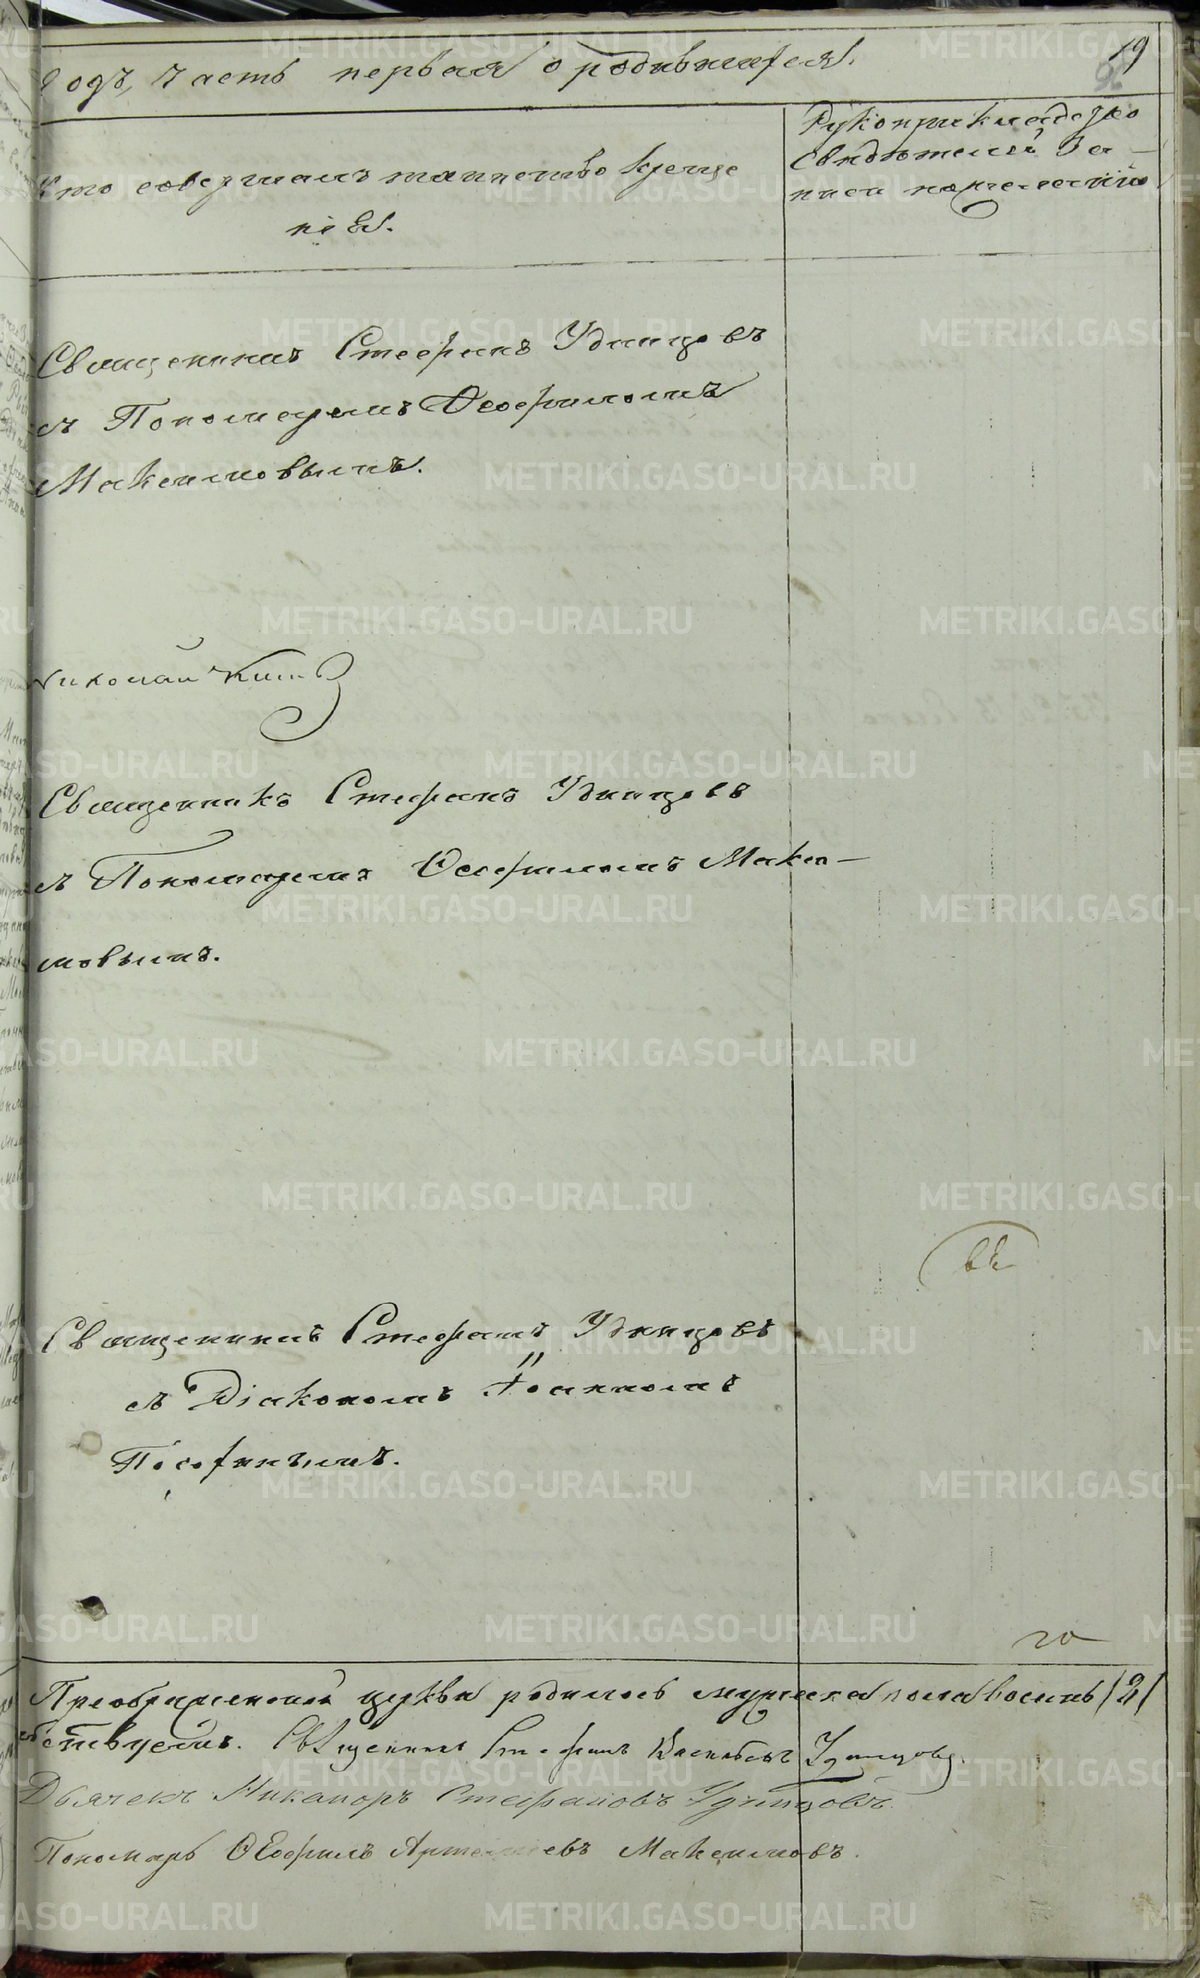 годъ, часть первая о родившихся.
19
Кто совершалъ таинство креще
нія.
Рукоприкладство
свидѣтелей за-
писи по желанію
Священникъ Стефанъ Удинцовъ
съ Пономаремъ Ѳеофиломъ
Максимовымъ.
Николай
Священникъ Стефанъ Удинцовъ
съ Пономаремъ Ѳеофиломъ Макси-
мовымъ.
Священникъ Стефанъ Удинцовъ
съ Діакономъ Іоанномъ
Преображенской церкви родилось мужеска пола восемь
ствуемъ. Священникъ Стефанъ Васильевъ Удинцовъ.
Дьячекъ Никаноръ Стефановъ Удинцовъ
Пономарь Ѳеофилъ Артемьевъ Максимовъ.
METRIKI.GASO-URAL.RU